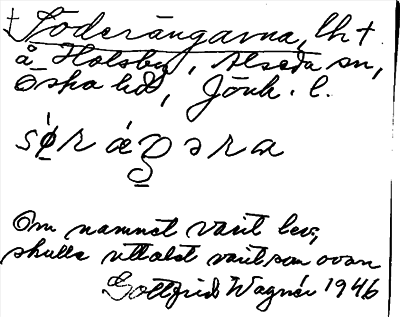 †Söderängarna, lh †
å Holsby, Alseda sn,
Östra hd, Jönk. l.
sǿr áꞬəra
Om namnet varit lev,
skulle uttalet varit som ovan
Gottfrid Wagnér 1946